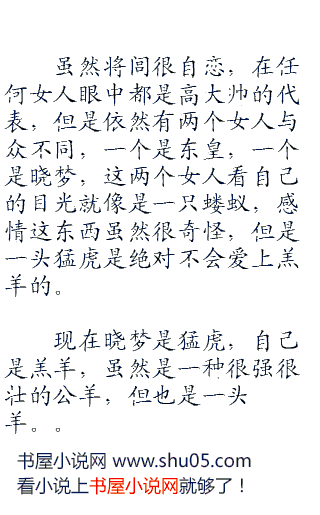 虽然将闾很自恋，在任
何女人眼中都是高大帅的代
表，但是依然有两个女人与
众不同，一个是东皇，一个
是晓梦，这两个女人看自己
的目光就像是一只蝼蚁，感
情这东西虽然很奇怪，但是
一头猛虎是绝对不会爱上羔
羊的。
现在晓梦是猛虎，自己
是羔羊，虽然是一种很强很
壮的公羊，但也是一头
羊。。
书屋小说网 www.shu05.com
看小说上书屋小说网就够了！